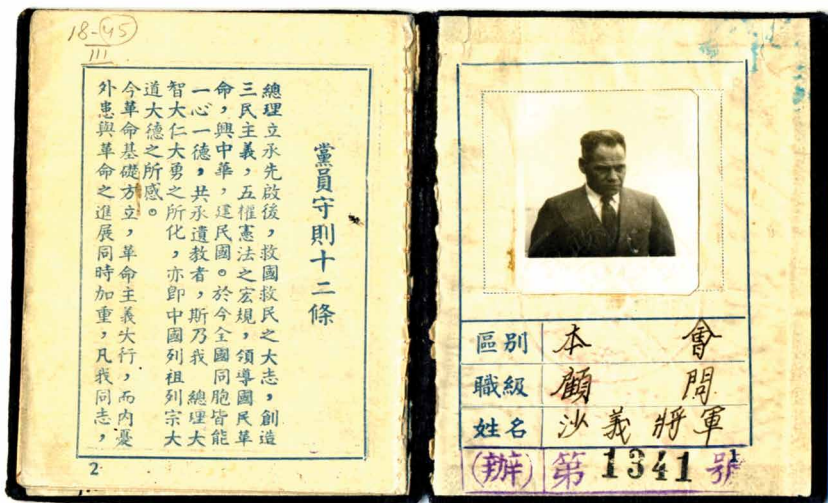 18-45
III
黨員守則十二條
總理立承先啟後，救國救民之大志，創造
三民主義，五權憲法之宏規，領導國民革
命，興中華，建民國。於今全國同胞皆能
一心一德，共承遺教者，斯乃我 總理大
智大仁大勇之所化，亦即中國列祖列宗大
道大德之所感。
今革命基礎方立，革命主義大行，而內憂
外患與革命之進展同時加重，凡我同志，
2
區別 本會
職級 顧問
姓名 沙義將軍
(辦) 第 1341 號